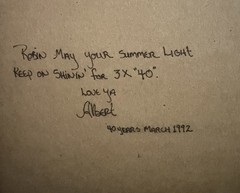 Robin May your summer Light
Keep on Shinin' for 3 X "40".
Love Ya
Albert
40 years March 1992